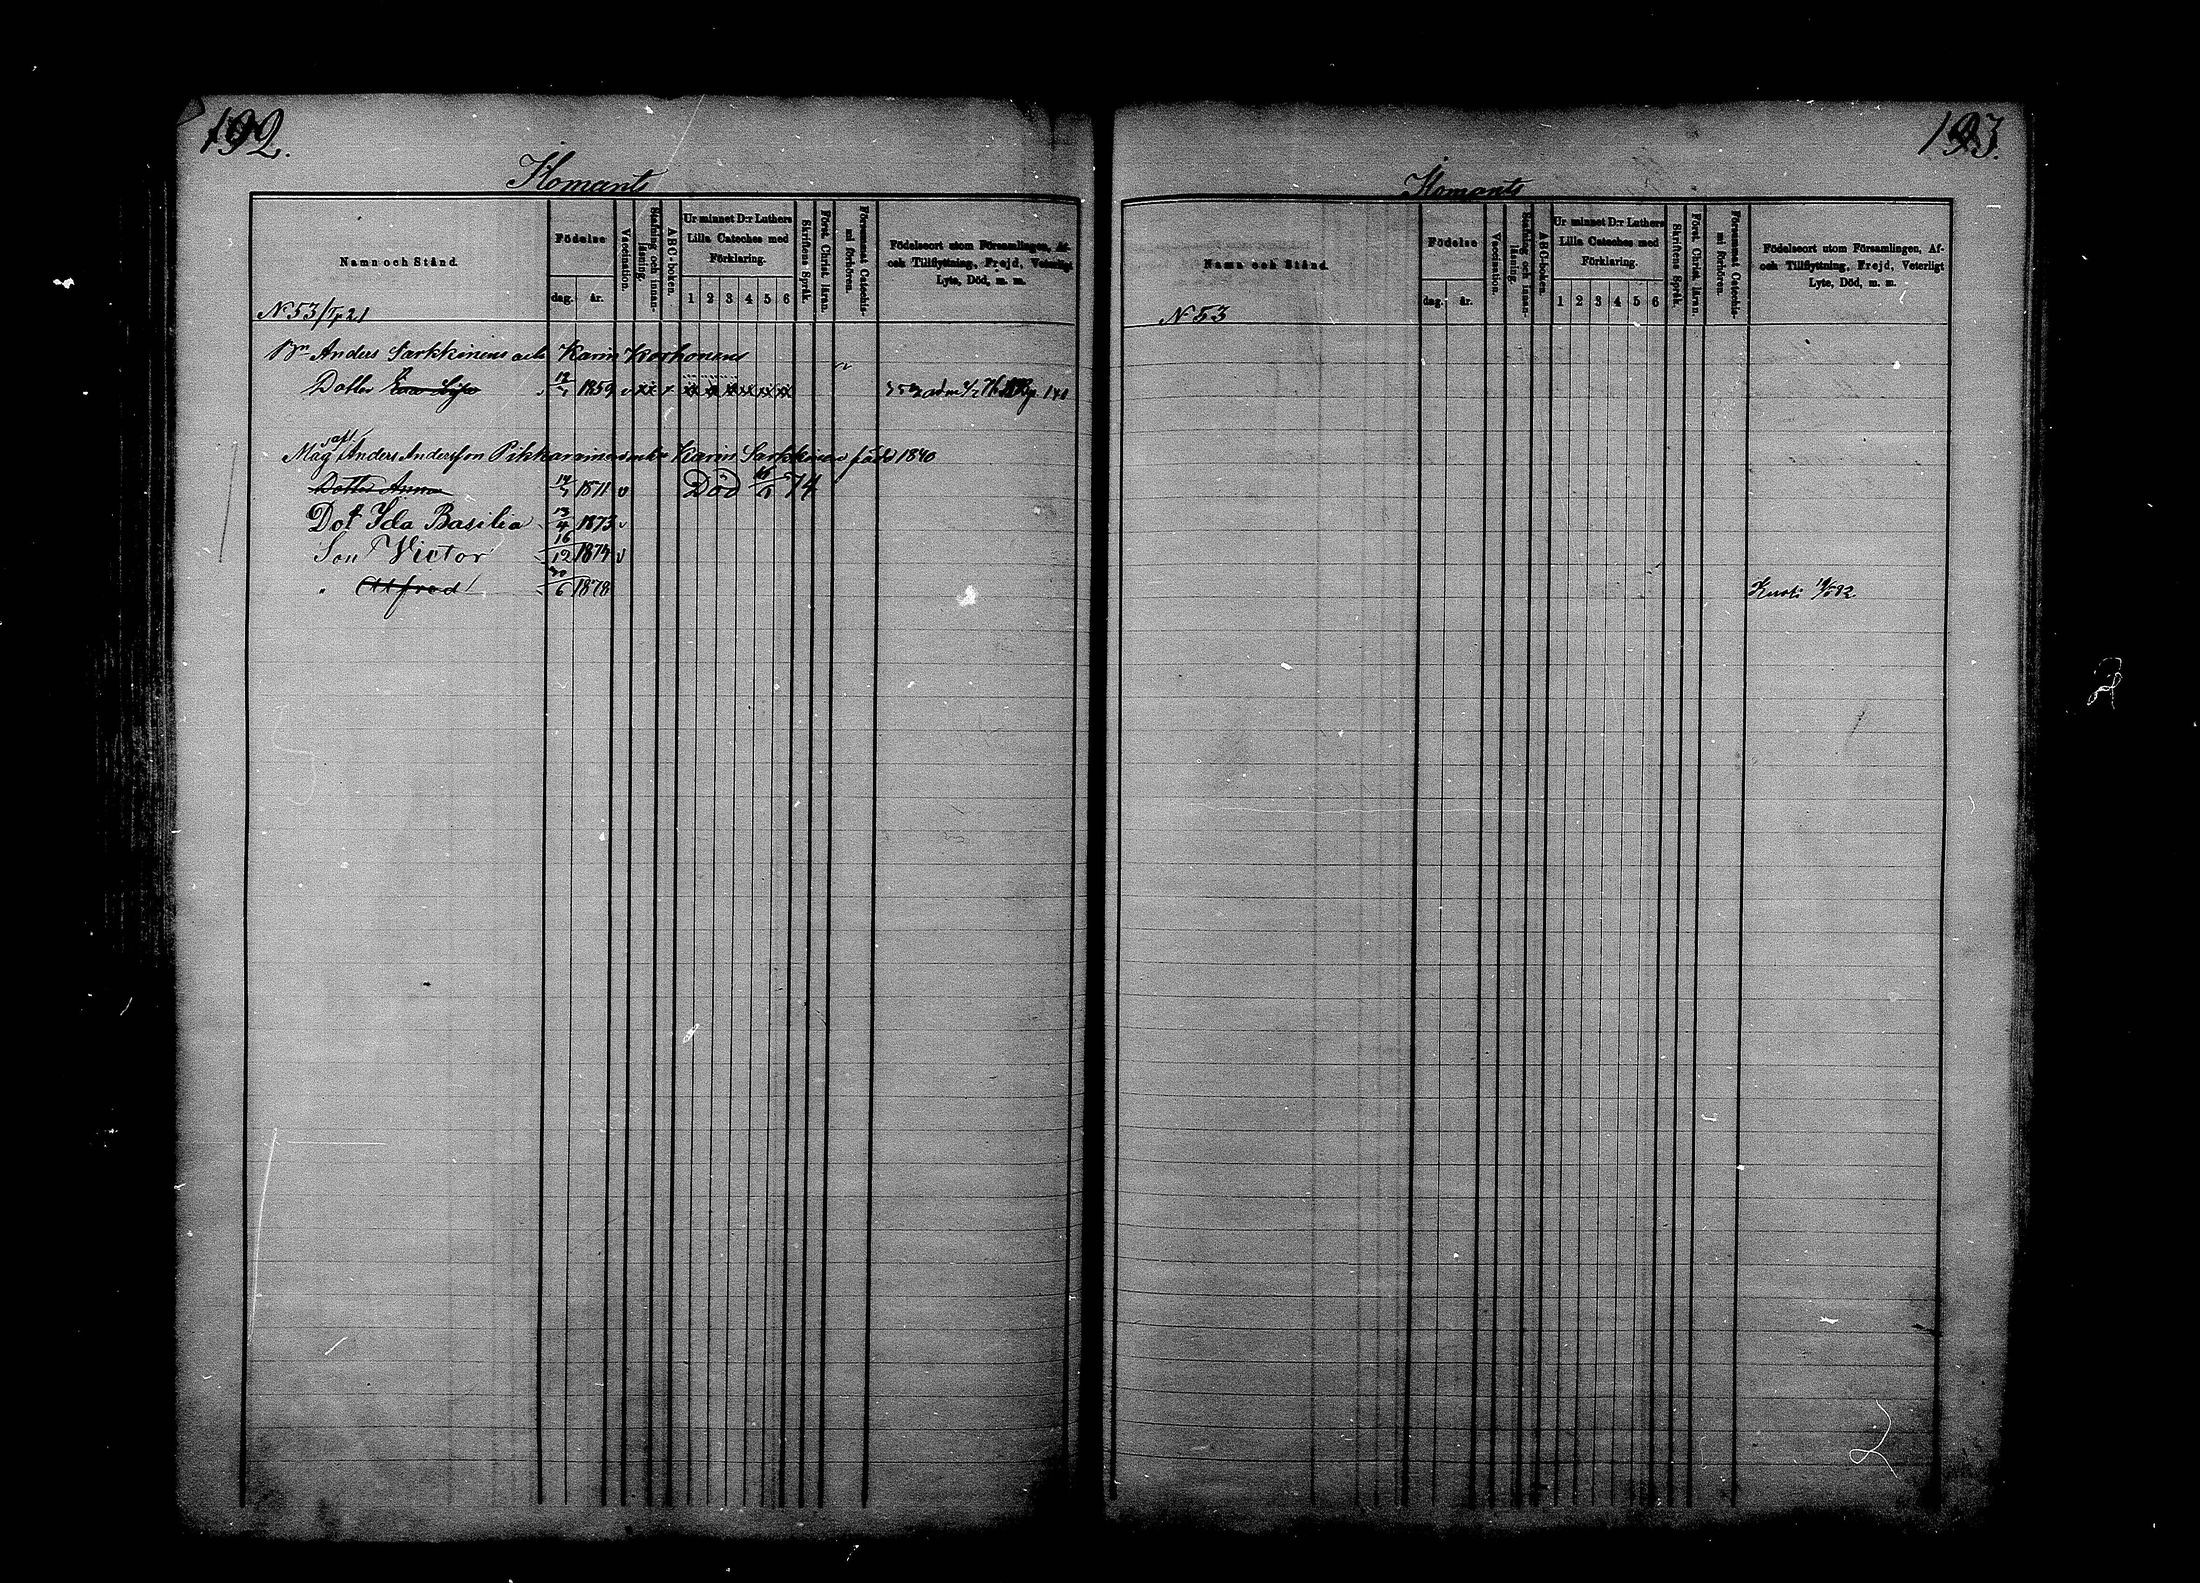 192.
Ilomants
Namn och Stånd.
Födelse
dag. år.
Vaccination.
Stafning och innan-läsning.
ABC-boken.
Ur minnet D:r Luthers
Lilla Cateches med
Förklaring.
1 2 3 4 5 6
Skriftens Språk.
Först. Christ. läran.
Försummat Catechis-mi förhören.
Födelseort utom Församlingen, Af-
och Tillflyttning, Frejd, Veterligt
Lyte, Död, m. m.
N 53
Bn Anders Sarkkinens och Karin Korhonens
Dotter Eva Lisa 1859
Måg Anders Andersson Pikkarainen Karin Sarkkinen född 1840
Dotter Anna 1871 v Död 74
Dot Ida Basilia 13/4 1873 v
Son Victor 16/12 1874 v
" Alfred 30/6 1878
193.
Ilomants
Namn och Stånd.
Födelse
dag. år.
Vaccination.
Stafning och innan-läsning.
ABC-boken.
Ur minnet D:r Luthers
Lilla Cateches med
Förklaring.
1 2 3 4 5 6
Skriftens Språk.
Först. Christ. läran.
Försummat Catechis-mi förhören.
Födelseort utom Församlingen, Af-
och Tillflyttning, Frejd, Veterligt
Lyte, Död, m. m.
N 53
82.
2
2